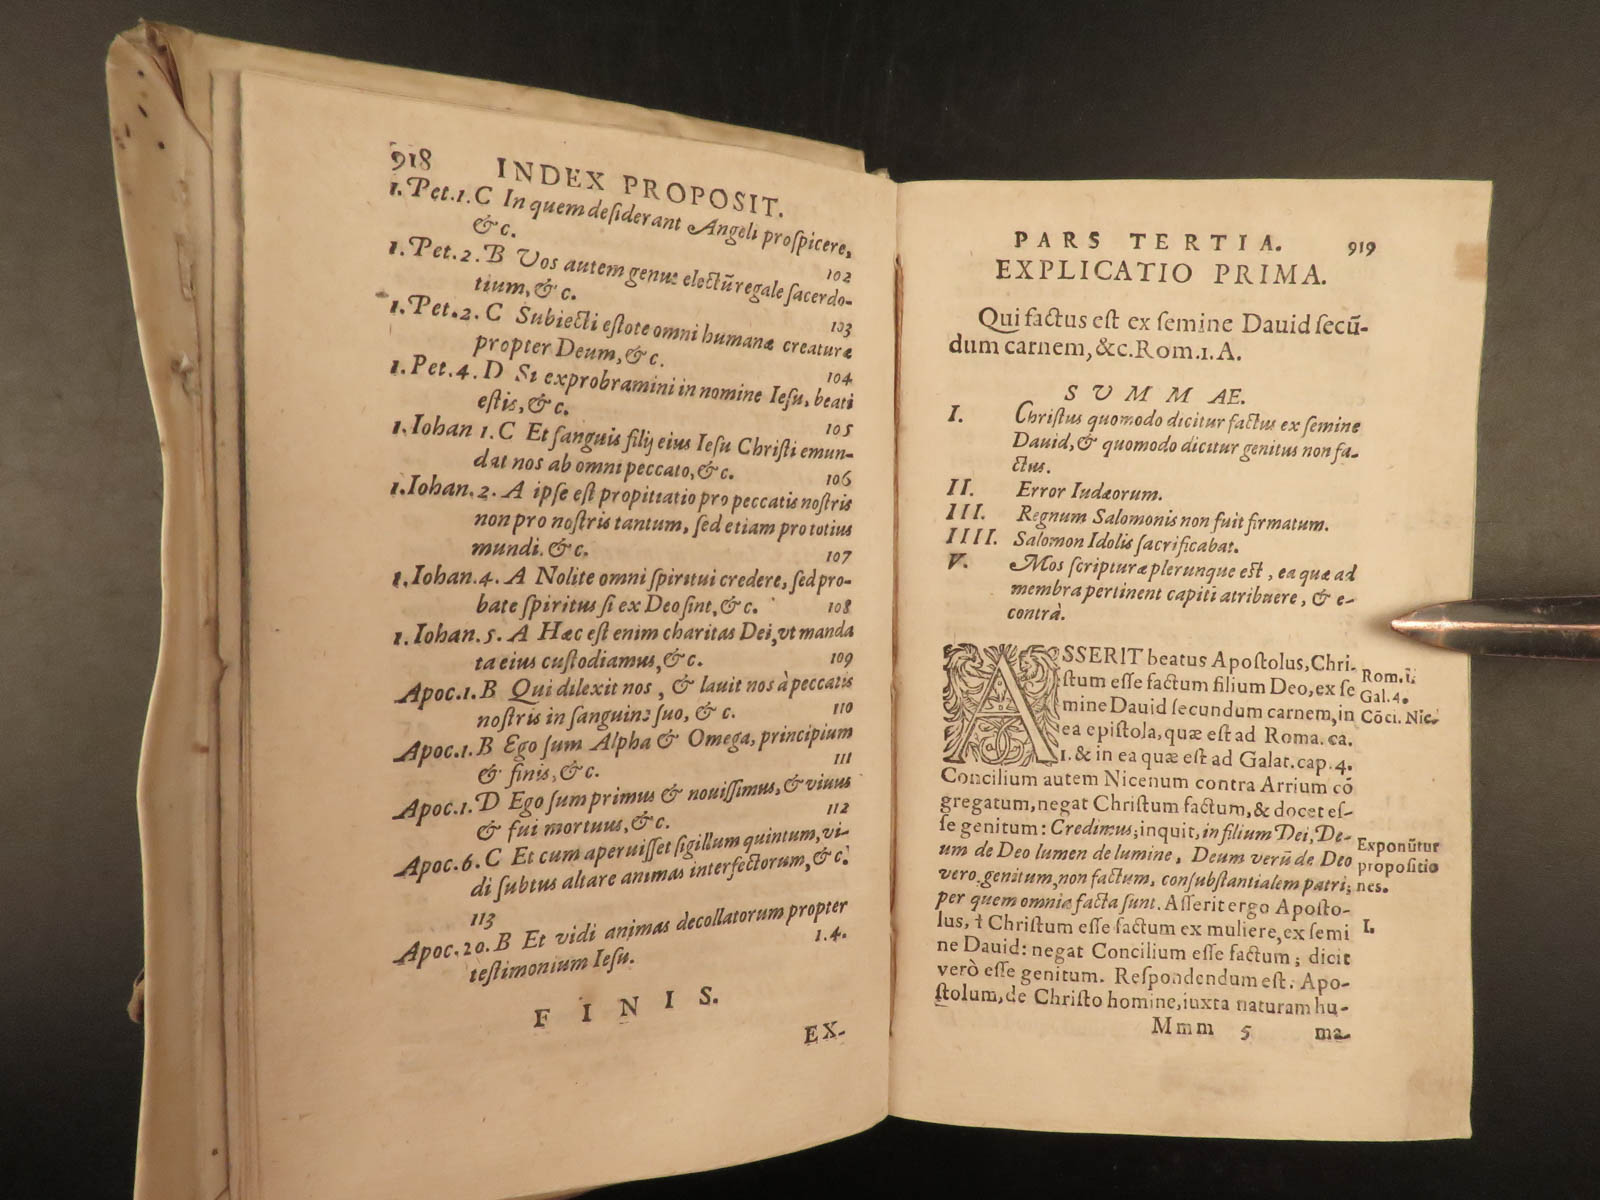 918 INDEX PROPOSIT.
1. Pet. 1. C In quem deſiderant Angeli proſpicere,
&c. 102
1. Pet. 2. B Vos autem genus electũ regale ſacerdo-
tium, &c. 103
1. Pet. 2. C Subiecti eſtote omni humanæ creaturæ
propter Deum, &c. 104
1. Pet. 4. D Si exprobramini in nomine Ieſu, beati
eſtis, &c. 105
1. Iohan 1. C Et ſanguis filij eius Ieſu Chriſti emun-
dat nos ab omni peccato, &c. 106
1. Iohan. 2. A ipſe eſt propitiatio pro peccatis noſtris
non pro noſtris tantum, ſed etiam pro totius
mundi. &c. 107
1. Iohan. 4. A Nolite omni ſpiritui credere, ſed pro-
bate ſpiritus ſi ex Deo ſint, &c. 108
1. Iohan. 5. A Hæc est enim charitas Dei, vt manda
ta eius cuſtodiamus, &c. 109
Apoc. 1. B Qui dilexit nos, & lauit nos à peccatis
noſtris in ſanguine ſuo, &c. 110
Apoc. 1. B Ego ſum Alpha & Omega, principium
& finis, &c. 111
Apoc. 1. D Ego ſum primus & nouiſſimus, & viuus
& fui mortuus, &c. 112
Apoc. 6. C Et cum aperuiſſet ſigillum quintum, vi-
di ſubtus altare animas interfectorum, &c.
113
Apoc. 20. B Et vidi animas decollatorum propter
teſtimonium Ieſu. 1.4.
FINIS.
EX-
PARS TERTIA. 919
EXPLICATIO PRIMA.
Qui factus eſt ex ſemine Dauid ſecũ-
dum carnem, &c. Rom. 1. A.
SVMMAE.
I. Chriſtus quomodo dicitur factus ex ſemine
Dauid, & quomodo dicitur genitus non fa-
ctus.
II. Error Iudæorum.
III. Regnum Salomonis non fuit firmatum.
IIII. Salomon Idolis ſacrificabat.
V. Mos ſcripturæ plerunque est, ea quæ ad
membra pertinent capiti atribuere, & e-
contrà.
ASSERIT beatus Apoſtolus, Chri-
ſtum eſſe factum filium Deo, ex ſe
mine Dauid ſecundum carnem, in
ea epiſtola, quæ eſt ad Roma. ca.
1. & in ea quæ eſt ad Galat. cap. 4.
Concilium autem Nicenum contra Arrium cõ
gregatum, negat Chriſtum factum, & docet eſ-
ſe genitum: Credimus, inquit, in filium Dei, De-
um de Deo lumen de lumine, Deum verũ de Deo
vero genitum, non factum, conſubstantialem patri;
per quem omnia facta ſunt. Aſſerit ergo Apoſto-
lus, † Chriſtum eſſe factum ex muliere, ex ſemi
ne Dauid: negat Concilium eſſe factum; dicit
verò eſſe genitum. Reſpondendum eſt. Apo-
ſtolum, de Chriſto homine, iuxta naturam hu-
Mmm 5 ma-
Rom. 1.
Gal. 4.
Cõci. Nic.
Exponũtur
propoſitio
nes.
I.